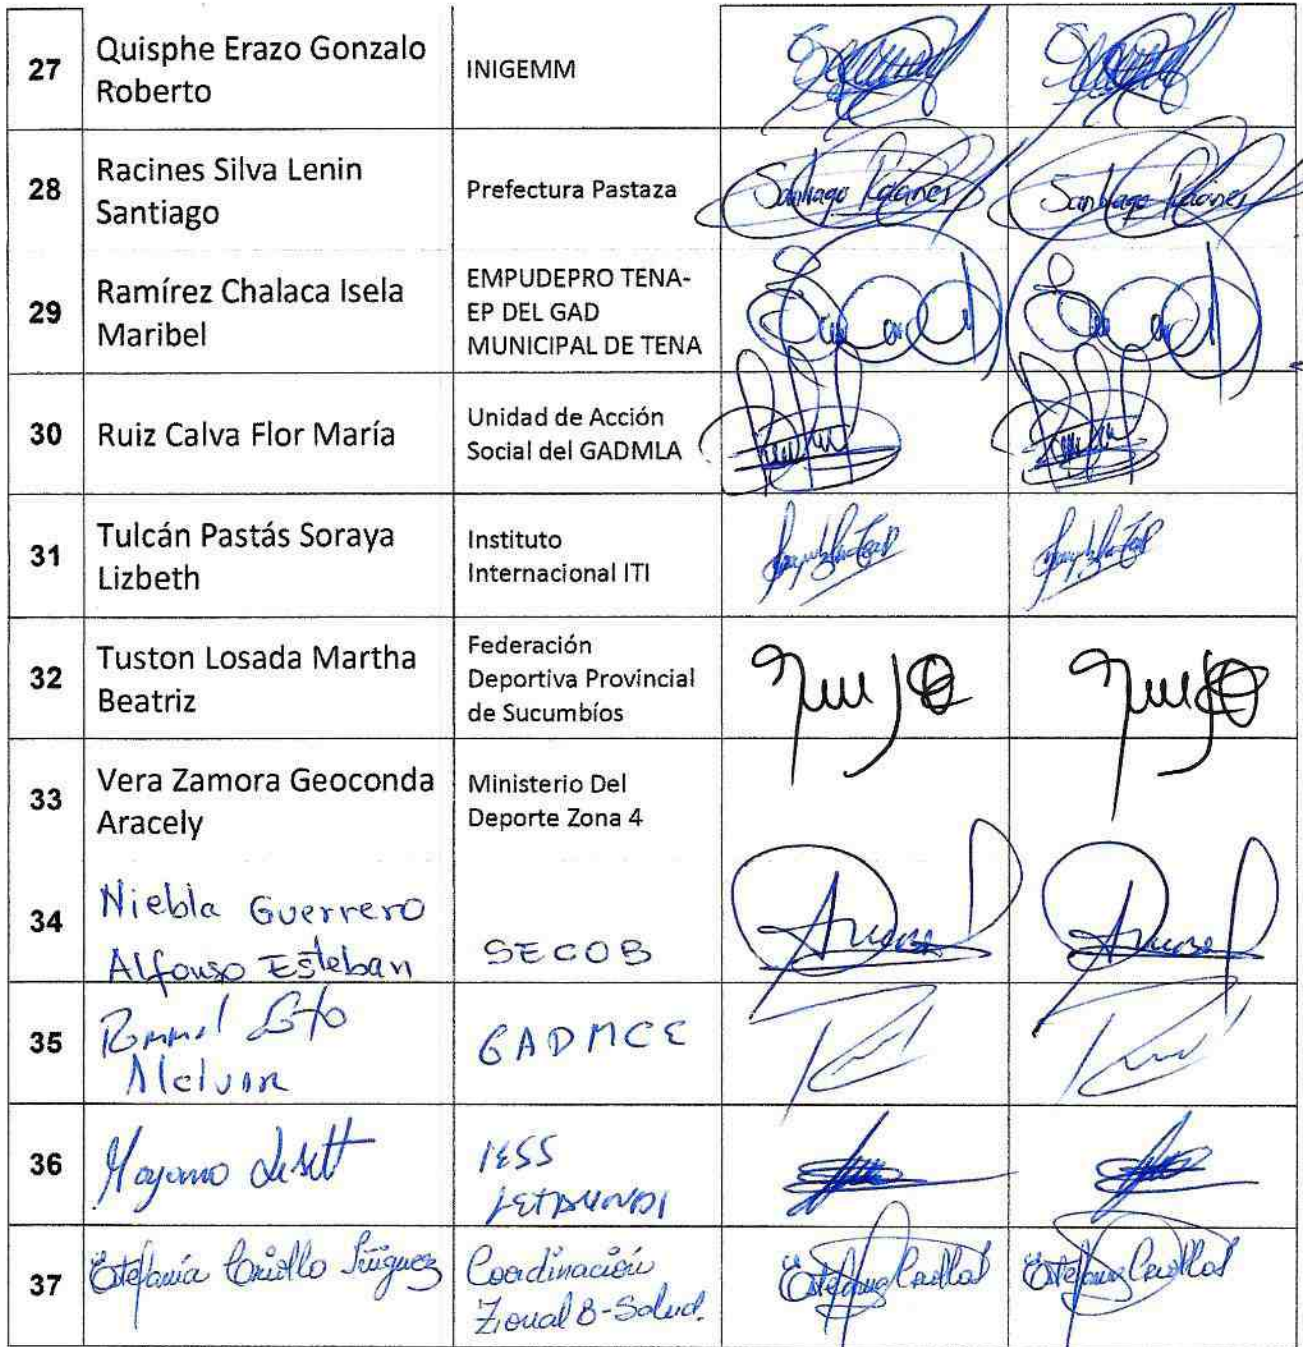 27 Quisphe Erazo Gonzalo
Roberto
INIGEMM
28 Racines Silva Lenin
Santiago
Prefectura Pastaza
Santiago Racines
Santiago Racines
29 Ramírez Chalaca Isela
Maribel
EMPUDEPRO TENA-
EP DEL GAD
MUNICIPAL DE TENA
30 Ruiz Calva Flor María
Unidad de Acción
Social del GADMLA
31 Tulcán Pastás Soraya
Lizbeth
Instituto
Internacional ITI
32 Tuston Losada Martha
Beatriz
Federación
Deportiva Provincial
de Sucumbíos
33 Vera Zamora Geoconda
Aracely
Ministerio Del
Deporte Zona 4
34 Niebla Guerrero
Alfonso Esteban
SECOB
35
GADMCE
36 Moyano Lisett
IESS
37 Estefanía Criollo Iñiguez
Coordinación
Zonal 8-Salud.